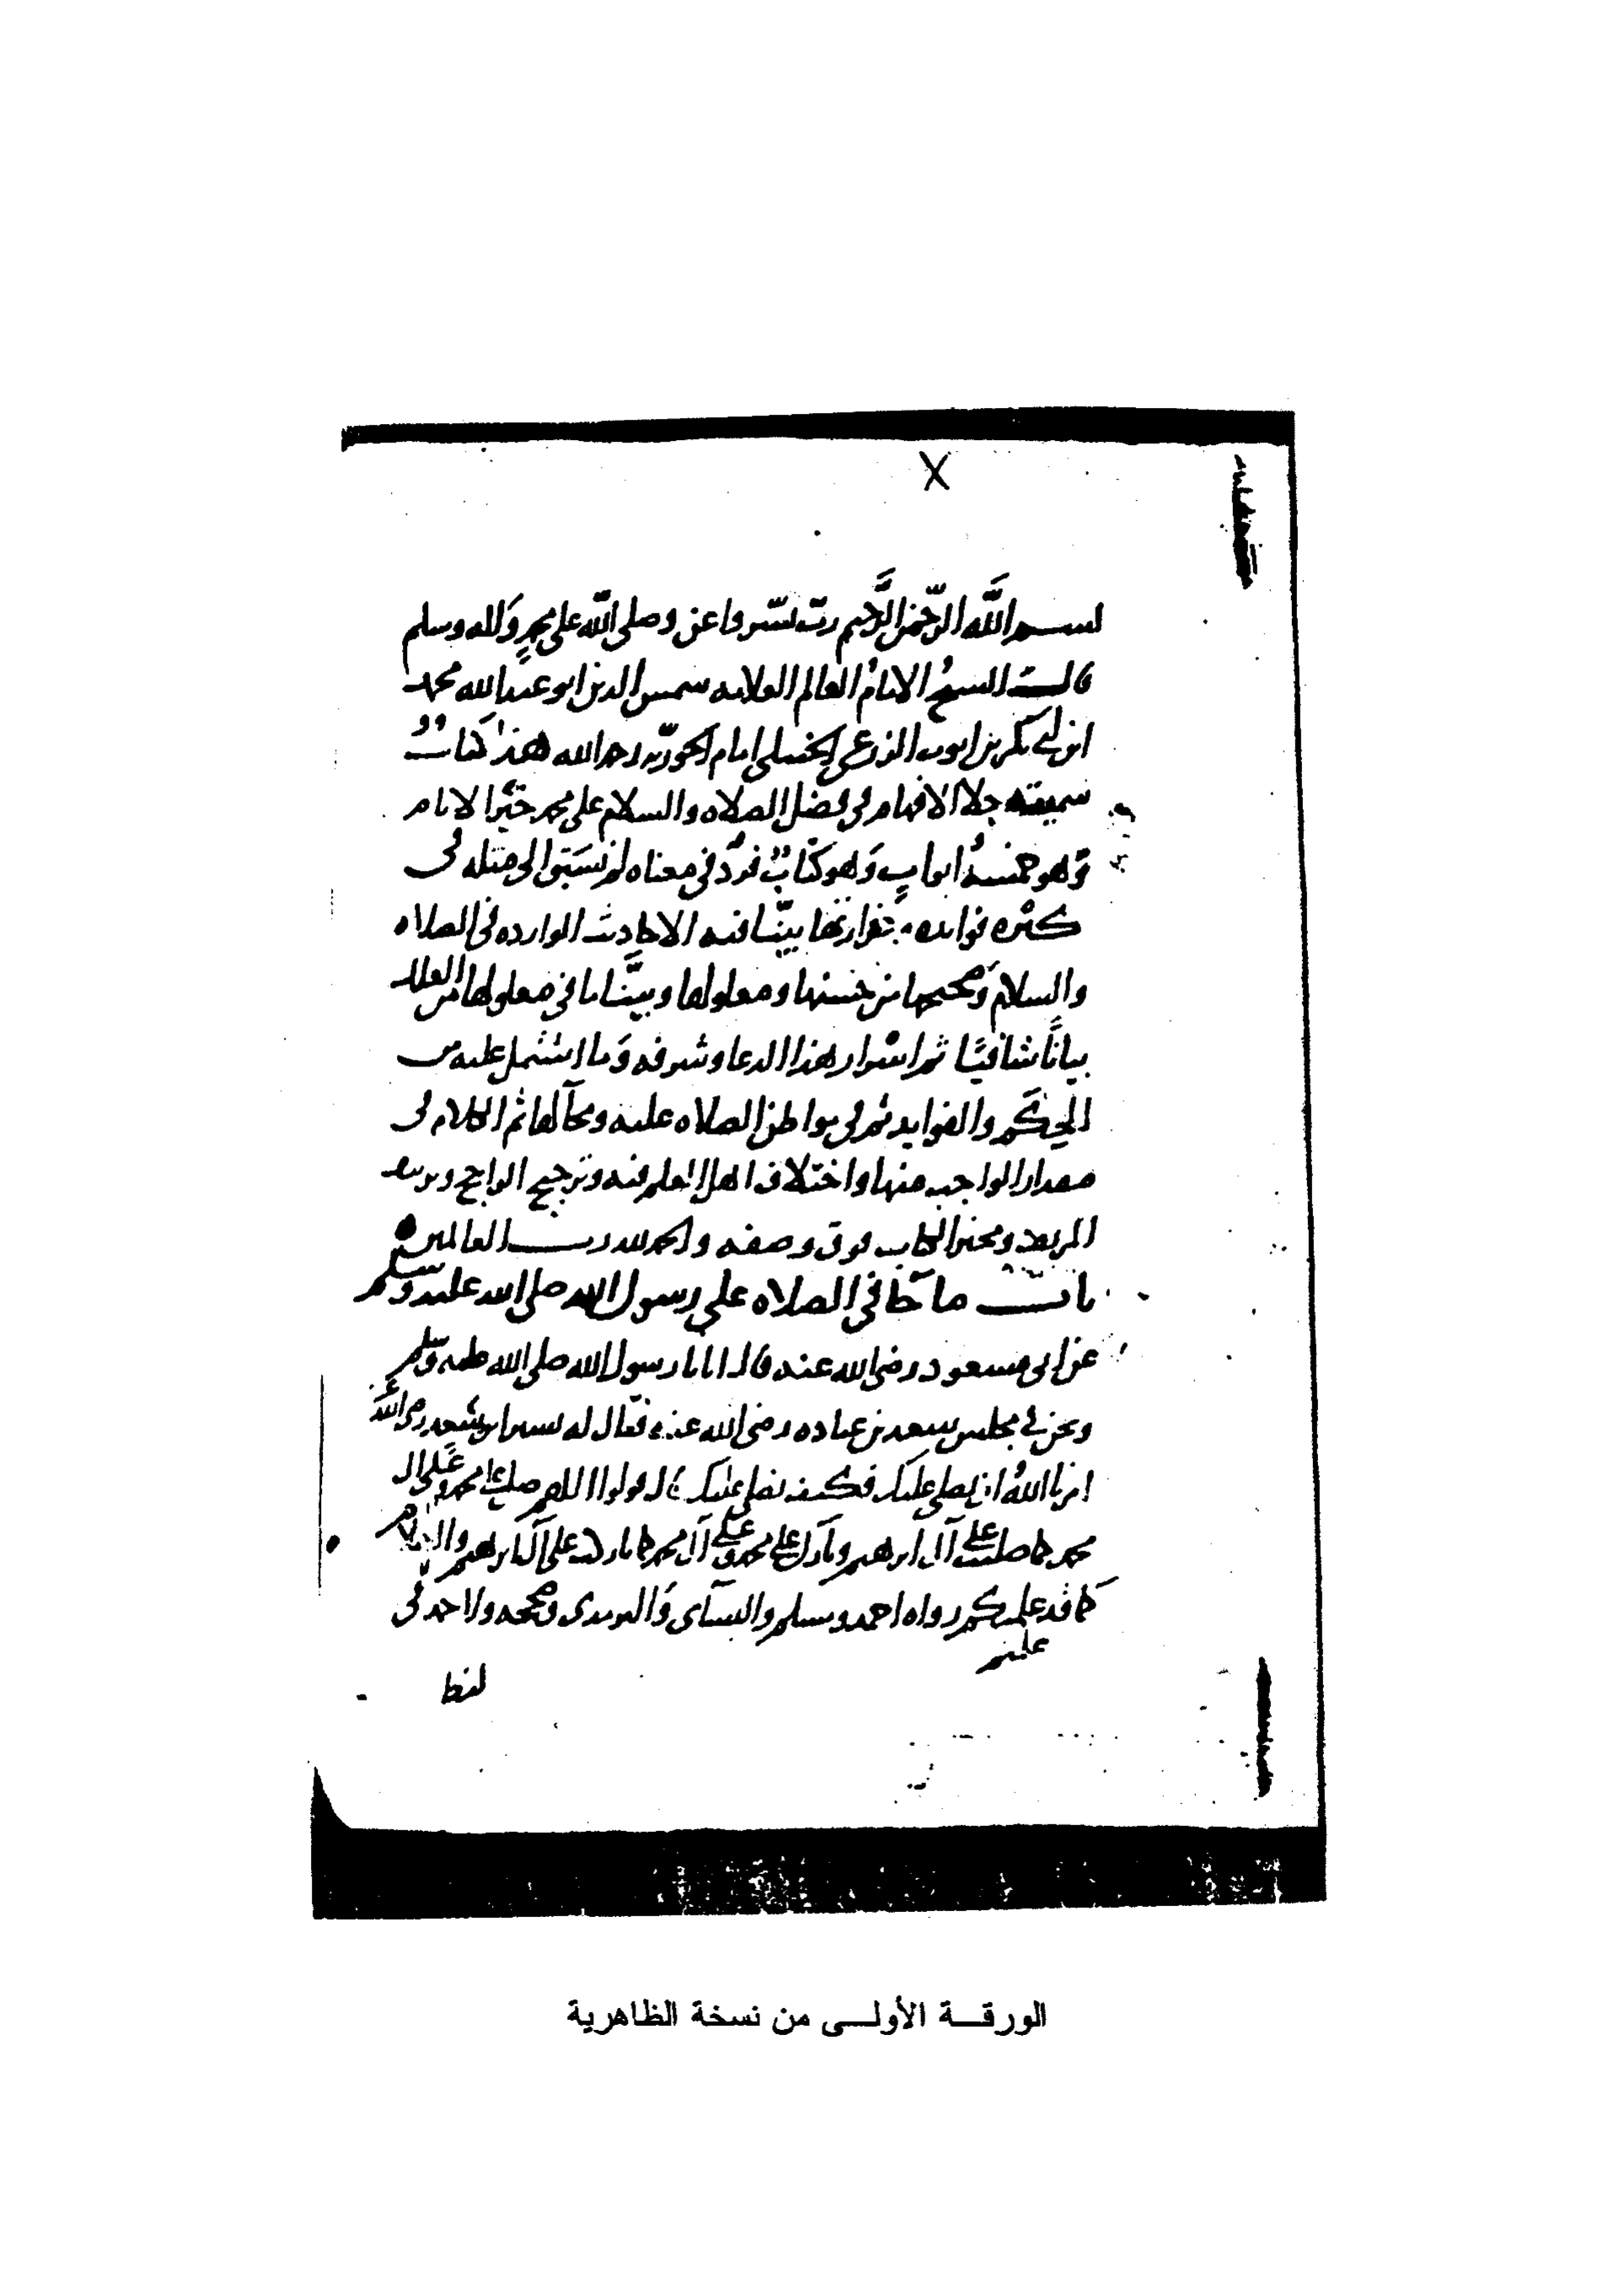 بسم الله الرحمن الرحيم رب يسر واعن وصلى الله على محمد وآله وسلم
قال الشيخ الامام العالم العلامه شمس الدين ابو عبد الله محمد
ابن ابي بكر بن ايوب الزرعي الحنبلي امام الجوزيه رحمه الله هذا كتاب
سميته جلا الافهام في فضل الصلاه والسلام على محمد خير الانام
وهو خمسة ابواب وهو كتاب فرد في معناه لم نسبق الى مثله في
كثره فوايده وغزارتها بينا فيه الاحاديث الوارده في الصلاه
والسلام وصحيحها من حسنها ومعلولها وبينا ما في معلولها من العلل
بيانا شافيا ثم اسرار هذا الدعا وشرفه وما اشتمل عليه من
الحكم والفوايد ثم في مواطن الصلاه عليه ومحآلها ثم الكلام في
مقدار الواجب منها واختلاف اهل العلم فيه وترجيح الراجح وتزييف
المزيف ومخبر الكتاب فوق وصفه والحمد لله رب العالمين
باب ما جا في الصلاه علي رسول الله صلى الله عليه وسلم
عن ابي مسعود رضي الله عنه قال اتانا رسول الله صلى الله عليه وسلم
ونحن في مجلس سعد بن عباده رضي الله عنه فقال له بشير بن سعد رضي الله عنه
امرنا الله ان نصلي عليك فكيف نصلي عليك قال قولوا اللهم صل على محمد وعلى ال
محمد كما صليت على آل ابرهيم وبارك على محمد وعلى آل محمد كما باركت على آل ابرهيم والسلام
كما قد علمتكم رواه احمد ومسلم والنسآي والترمذي وصححه ولاحمد في
علمتم
لفظ
الورقة الأولى من نسخة الظاهرية